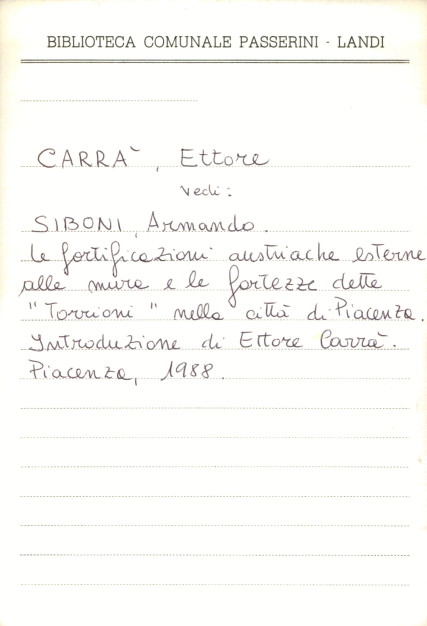 BIBLIOTECA COMUNALE PASSERINI - LANDI
CARRA`, Ettore
Vedi:
SIBONI, Armando.
Le fortificazioni austriache esterne
alle mura e le fortezze dette
"Torrioni" nella città di Piacenza.
Introduzione di Ettore Carrà.
Piacenza, 1988.